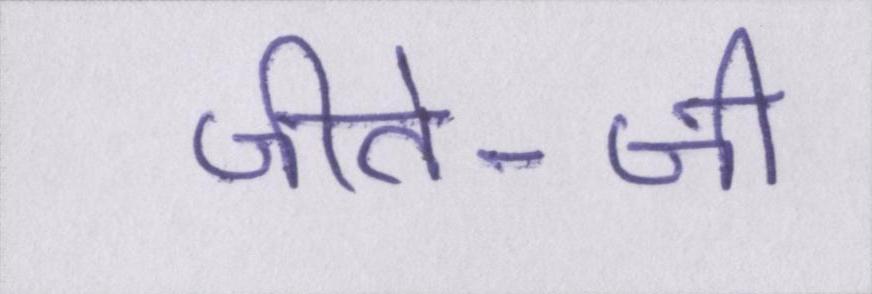 जीते-जी